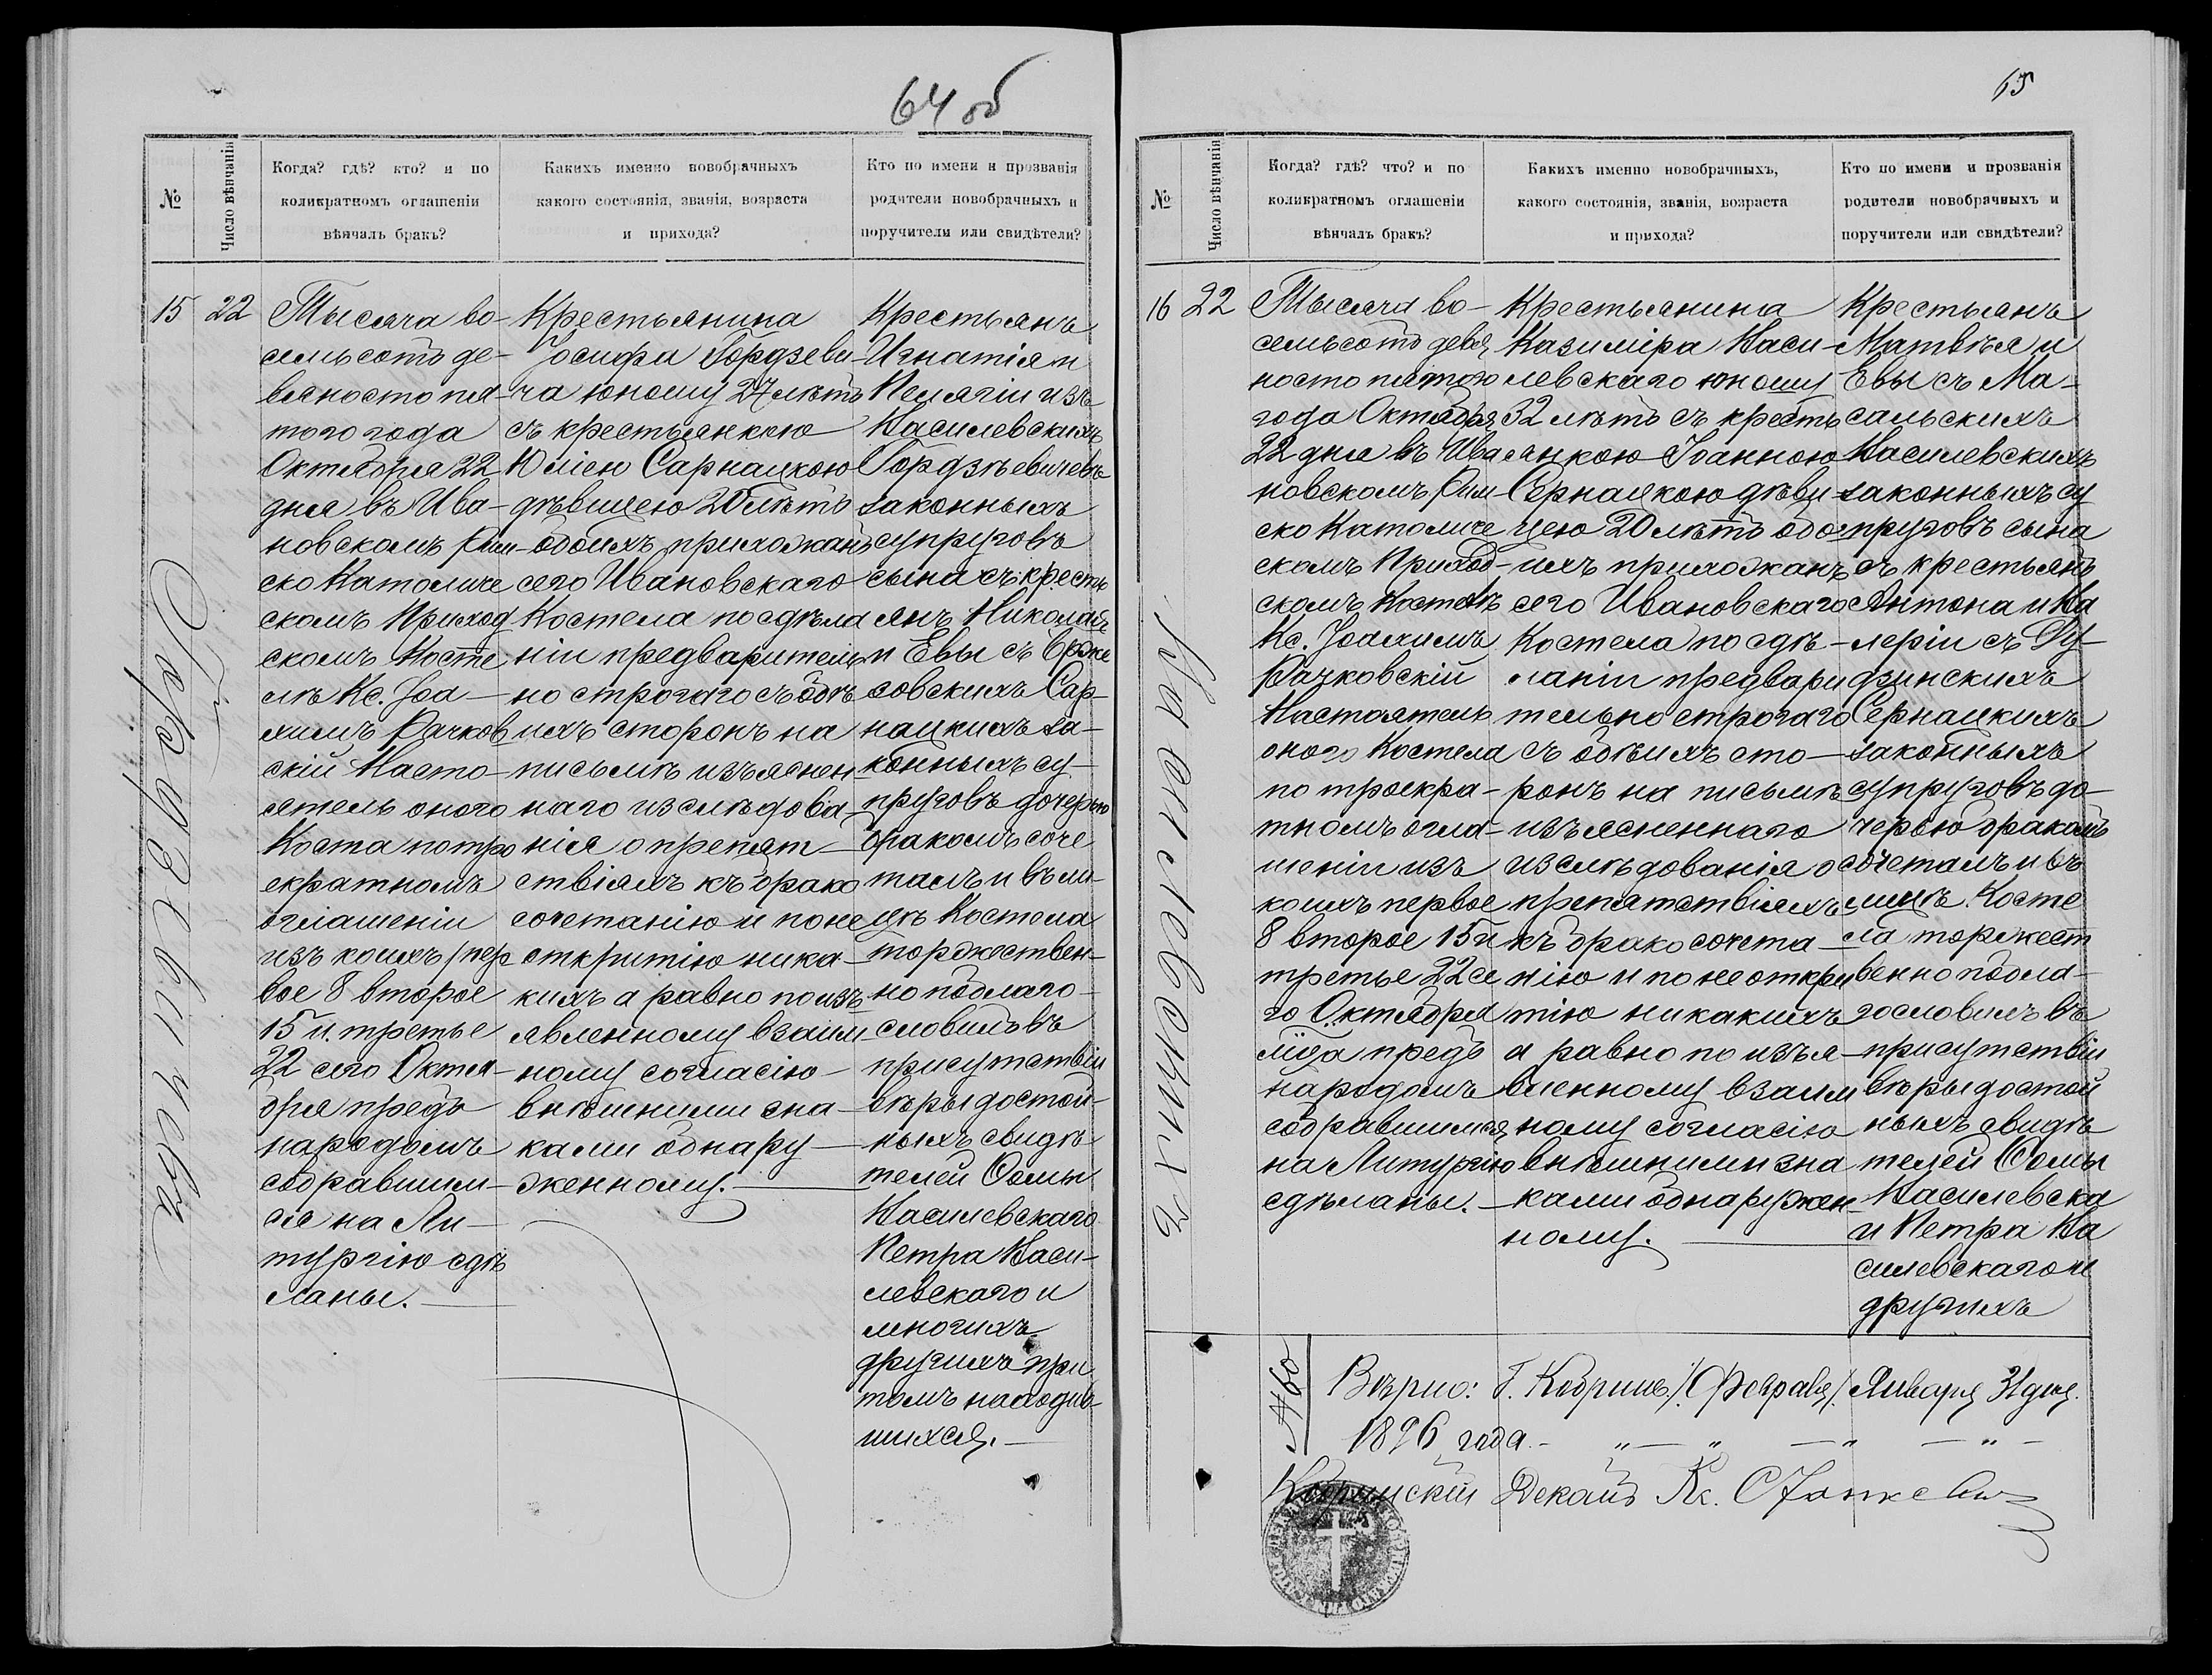 64 об
№
Число вѣнчанія
Когда? гдѣ? кто? и по
коликратномъ оглашеніи
вѣнчалъ бракъ?
Какихъ именно новобрачныхъ
какого состоянія, званія, возраста
и прихода?
Кто по имени и прозванія
родители новобрачныхъ и
поручители или свидѣтели?
15
22
Тысяча во-
семьсотъ де-
вяносто пя-
того года
Октября 22
дня въ Ива-
новскомъ Рим-
ско Католиче
скомъ Приход
скомъ Косте
лѣ Кс. Іоа-
химъ Рачков
скій Насто-
ятель оного
Коста по тро
екратномъ
оглашеніи
изъ коихъ пер
вое 8 второе
15 и третье
22 сего Октя-
бря предъ
народомъ
собравшим-
ся на Ли-
тургію сдѣ
ланы.
Крестьянина
Іосифа Гордзеви-
ча юношу 27 лѣтъ
съ крестьянкою
Юліею Сарнацкою
дѣвицею 20 лѣтъ
обоихъ прихожанъ
сего Ивановскаго
Костела по сдѣла
ніи предваритель
но строгаго съ обѣ
ихъ сторонъ на
письмѣ изъяснен
наго изслѣдова
нія о препят-
ствіяхъ къ брако
сочетанію и по не
открытію ника-
кихъ а равно по изъ
явленному взаим
ному согласію
внѣшними зна-
ками обнару-
женному.
Крестьянъ
Игнатія и
Пелягіи изъ
Василевскихъ
Гордзѣевичевъ
законныхъ
супруговъ
сына съ кресть
янъ Николая
и Евы съ Врже
совскихъ Сар-
нацкихъ за-
конныхъ су-
пруговъ дочерью
бракомъ соче
талъ и въ ли-
цѣ Костела
торжествен-
но поблаго-
словилъ въ
присутствіи
вѣры достой-
ныхъ свидѣ-
телей Ѳомы
Василевскаго
Петра Васи-
левскаго и
многихъ
другихъ при
томъ находив-
шихся.
Гордзевичевъ
65
№
Число вѣнчанія
Когда? гдѣ? что? и по
коликратномъ оглашеніи
вѣнчалъ бракъ?
Какихъ именно новобрачныхъ,
какого состоянія, званія, возраста
и прихода?
Кто по имени и прозванія
родители новобрачныхъ и
поручители или свидѣтели?
16
22
Тысяча во-
семьсотъ девя
носто пятого
года Октября
22 дня въ Ива
новскомъ Рим
ско Католиче
скомъ Приход-
скомъ Костелѣ
Кс. Іоахимъ
Рачковскій
Настоятель
оного Костела
по троекра-
тномъ огла-
шеніи изъ
коихъ первое
8 второе 15 и
третье 22 се
го Октября
м҃ца предъ
народомъ
собравшимся
на Литургію
сдѣланы.
Крестьянина
Казиміра Васи-
левскаго юношу
32 лѣтъ съ кресть
янкою Іоанною
Сернацкою дѣви
цею 20 лѣтъ обо
ихъ прихожанъ
сего Ивановскаго
Костела по сдѣ-
ланіи предвари
тельно строгаго
съ обѣихъ сто-
ронъ на письмѣ
изъясненнаго
изслѣдованія о
препятствіяхъ
къ брако сочета-
нію и по не откры
тію никакихъ
а равно по изъя-
вленному взаим
ному согласію
внѣшними зна
ками обнаружен
ному.
Крестьянъ
Матвѣя и
Евы съ Ма-
сальскихъ
Василевскихъ
законныхъ су
пруговъ сына
съ крестьянъ
Антона и Ва
леріи съ Ду-
дзинскихъ
Сернацкихъ
законныхъ
супруговъ до-
черью бракомъ
сочеталъ и въ
лицѣ Косте
ла торжест
венно побла-
гословилъ въ
присутствіи
вѣры достой
ныхъ свидѣ
телей Ѳомы
Василевска
и Петра Ва
силевскаго и
другихъ
Василевскихъ
№60
Вѣрно: Г. Кобринъ /Февраля/. Января 31 дня.
1896 года.
Кобринскій Деканъ Кс.